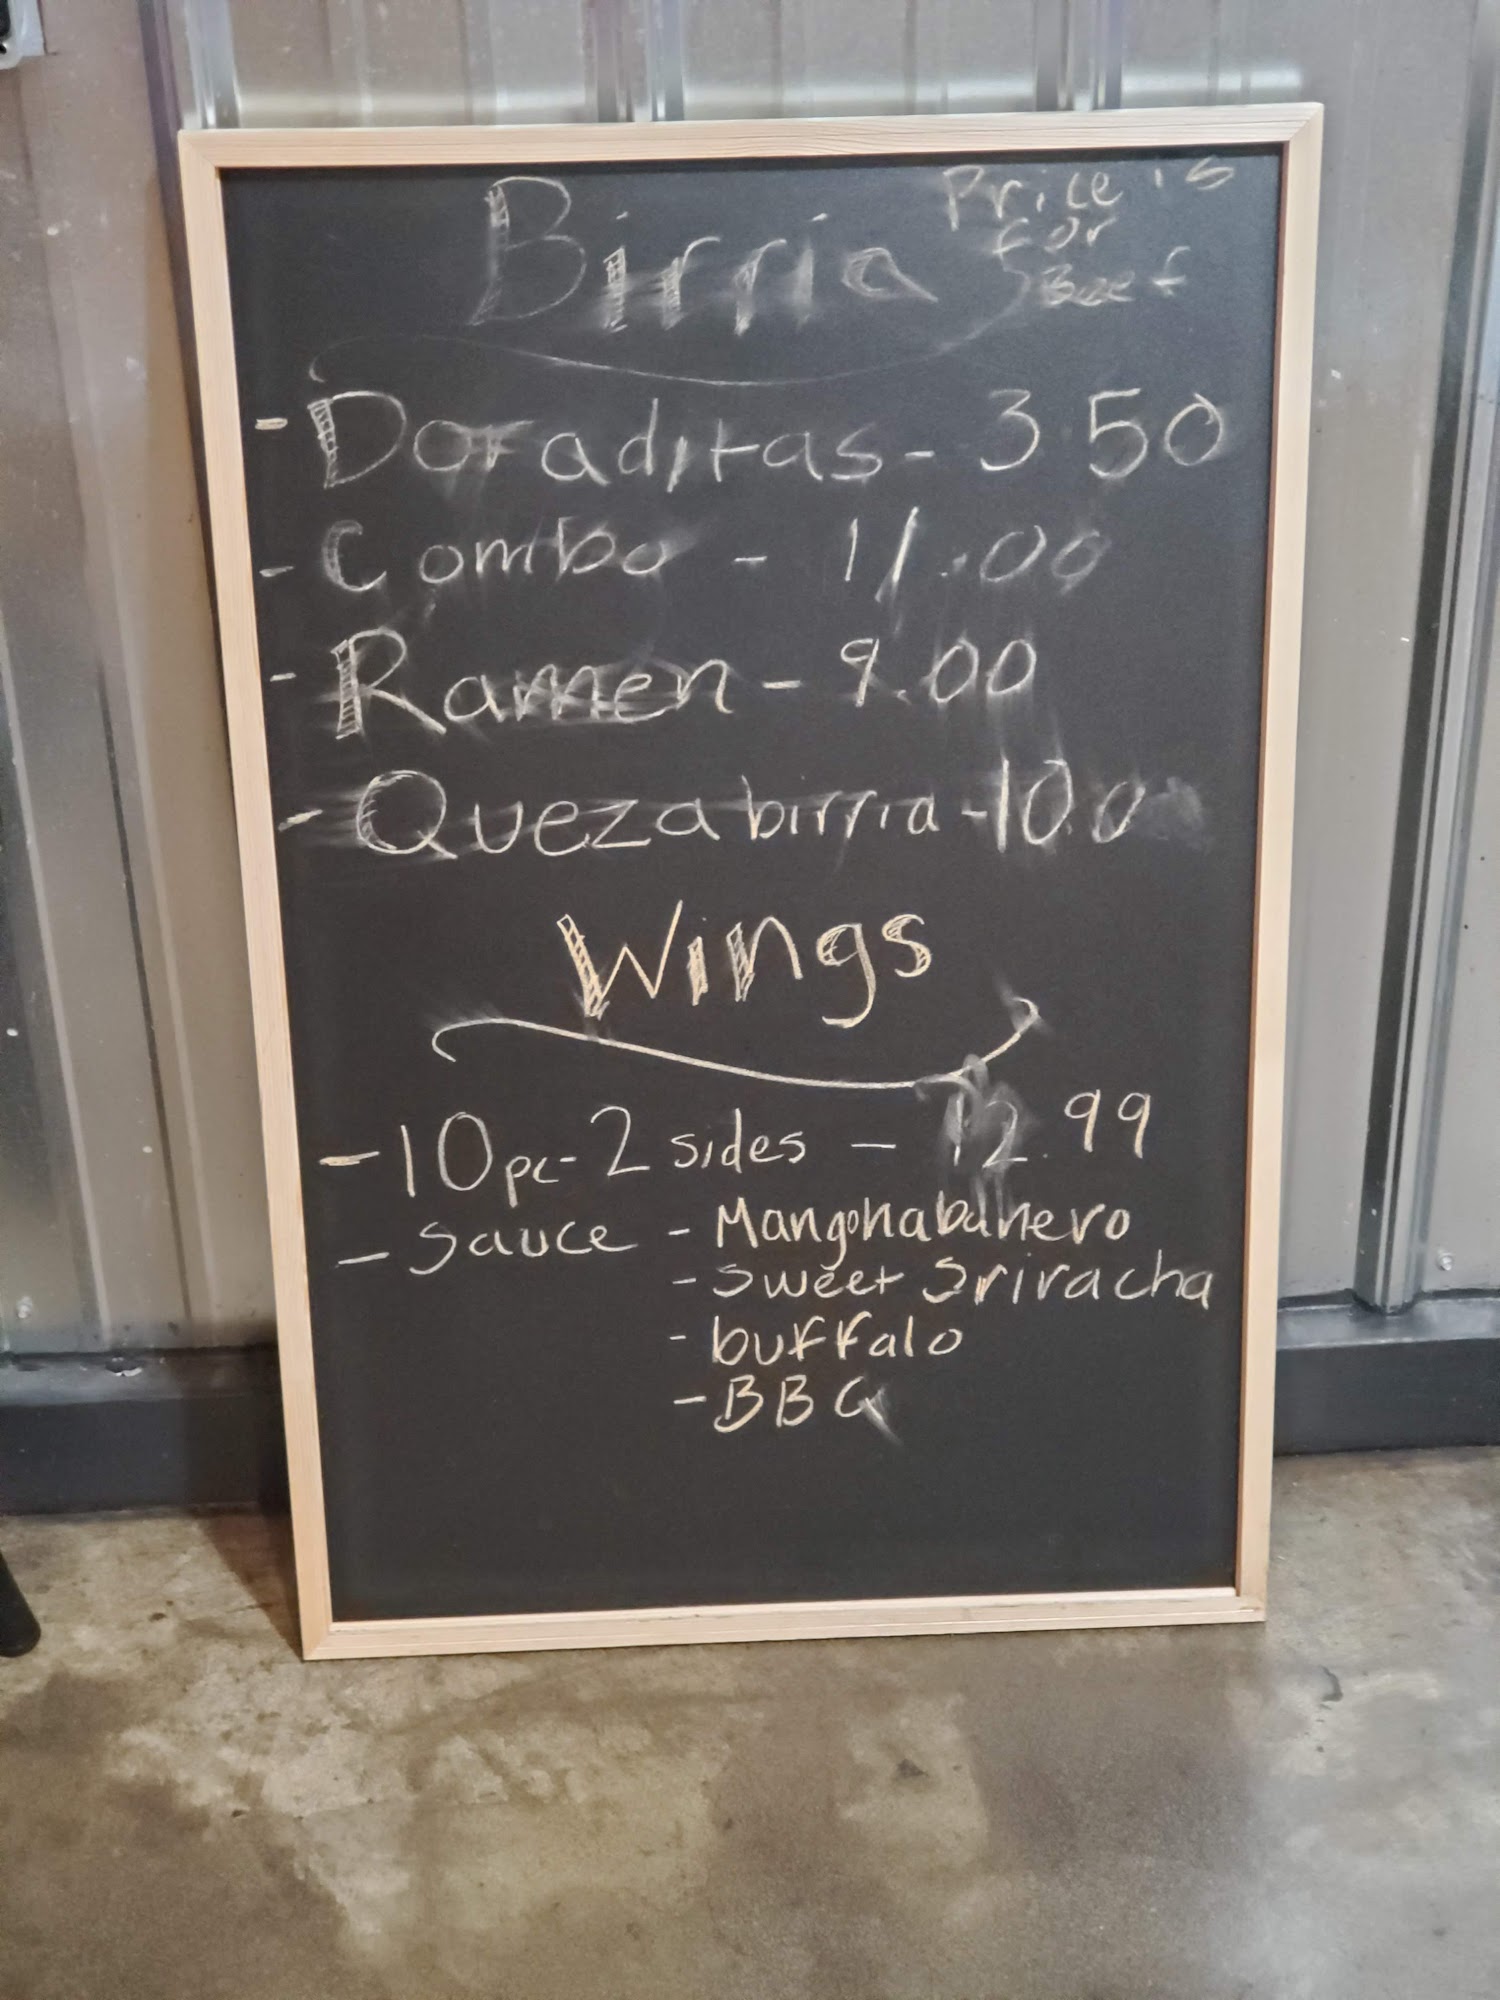 Birria
Price is
for
Beef
- Doraditas - 3.50
- Combo - 11.00
- Ramen - 9.00
- Quezabirria - 10.0
Wings
- 10pc - 2 sides - 12.99
- Sauce - Mangohabanero
- sweet Sriracha
- buffalo
- BBQ